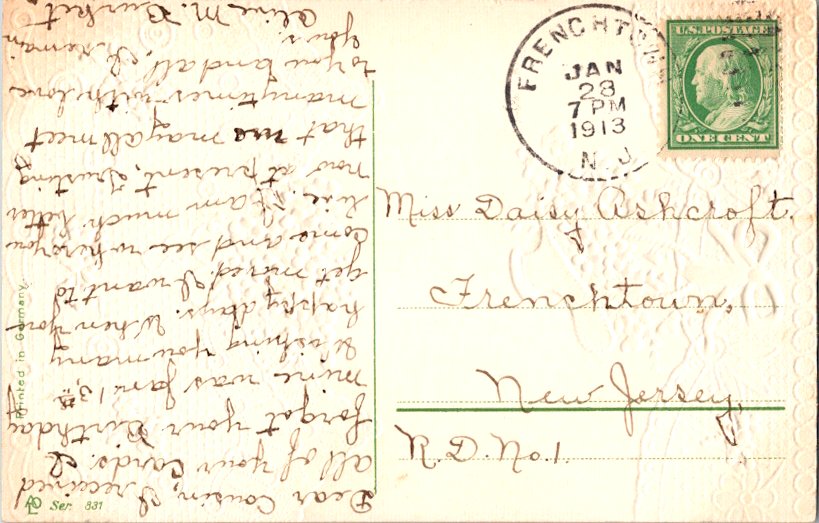 FRENCHTOWN
JAN
23
7 PM
1913
N. J.
U.S. POSTAGE
ONE CENT
Miss Daisy Ashcroft.
Frenchtown,
New Jersey,
R.D. No. 1.
Dear Cousin, I received
all of your Cards. I
forgot your Birthday
mine was Jan. 13,th
Wishing you many
happy days. When you
get moved I want to
come and see where you
live. I am much better
now at present, trusting
that we may all meet
many times with love
to you and all, I remain
yours,
M.
Printed in Germany.
Ser. 831